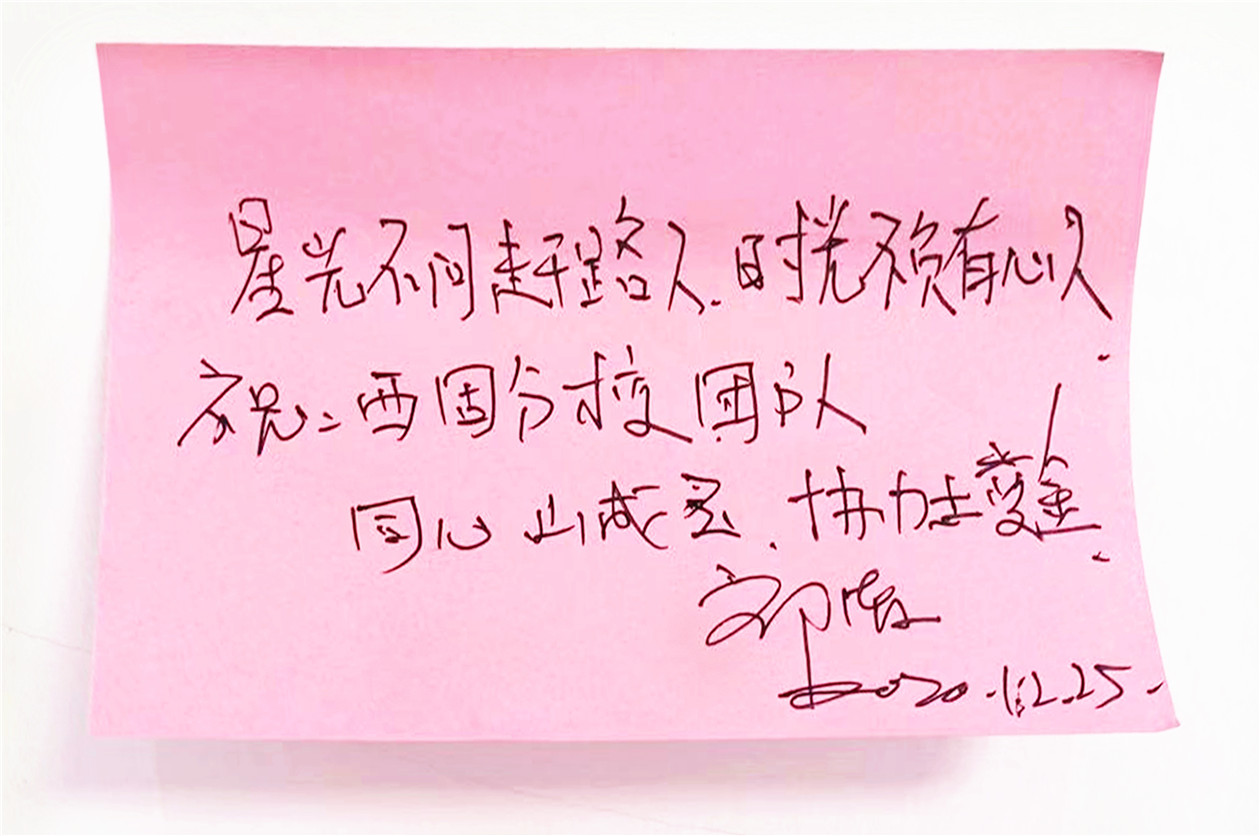 星光不问赶路人.时光不负有心人.
祝:西固分校团队
同心山成玉.协力土变金.
2020.12.25.